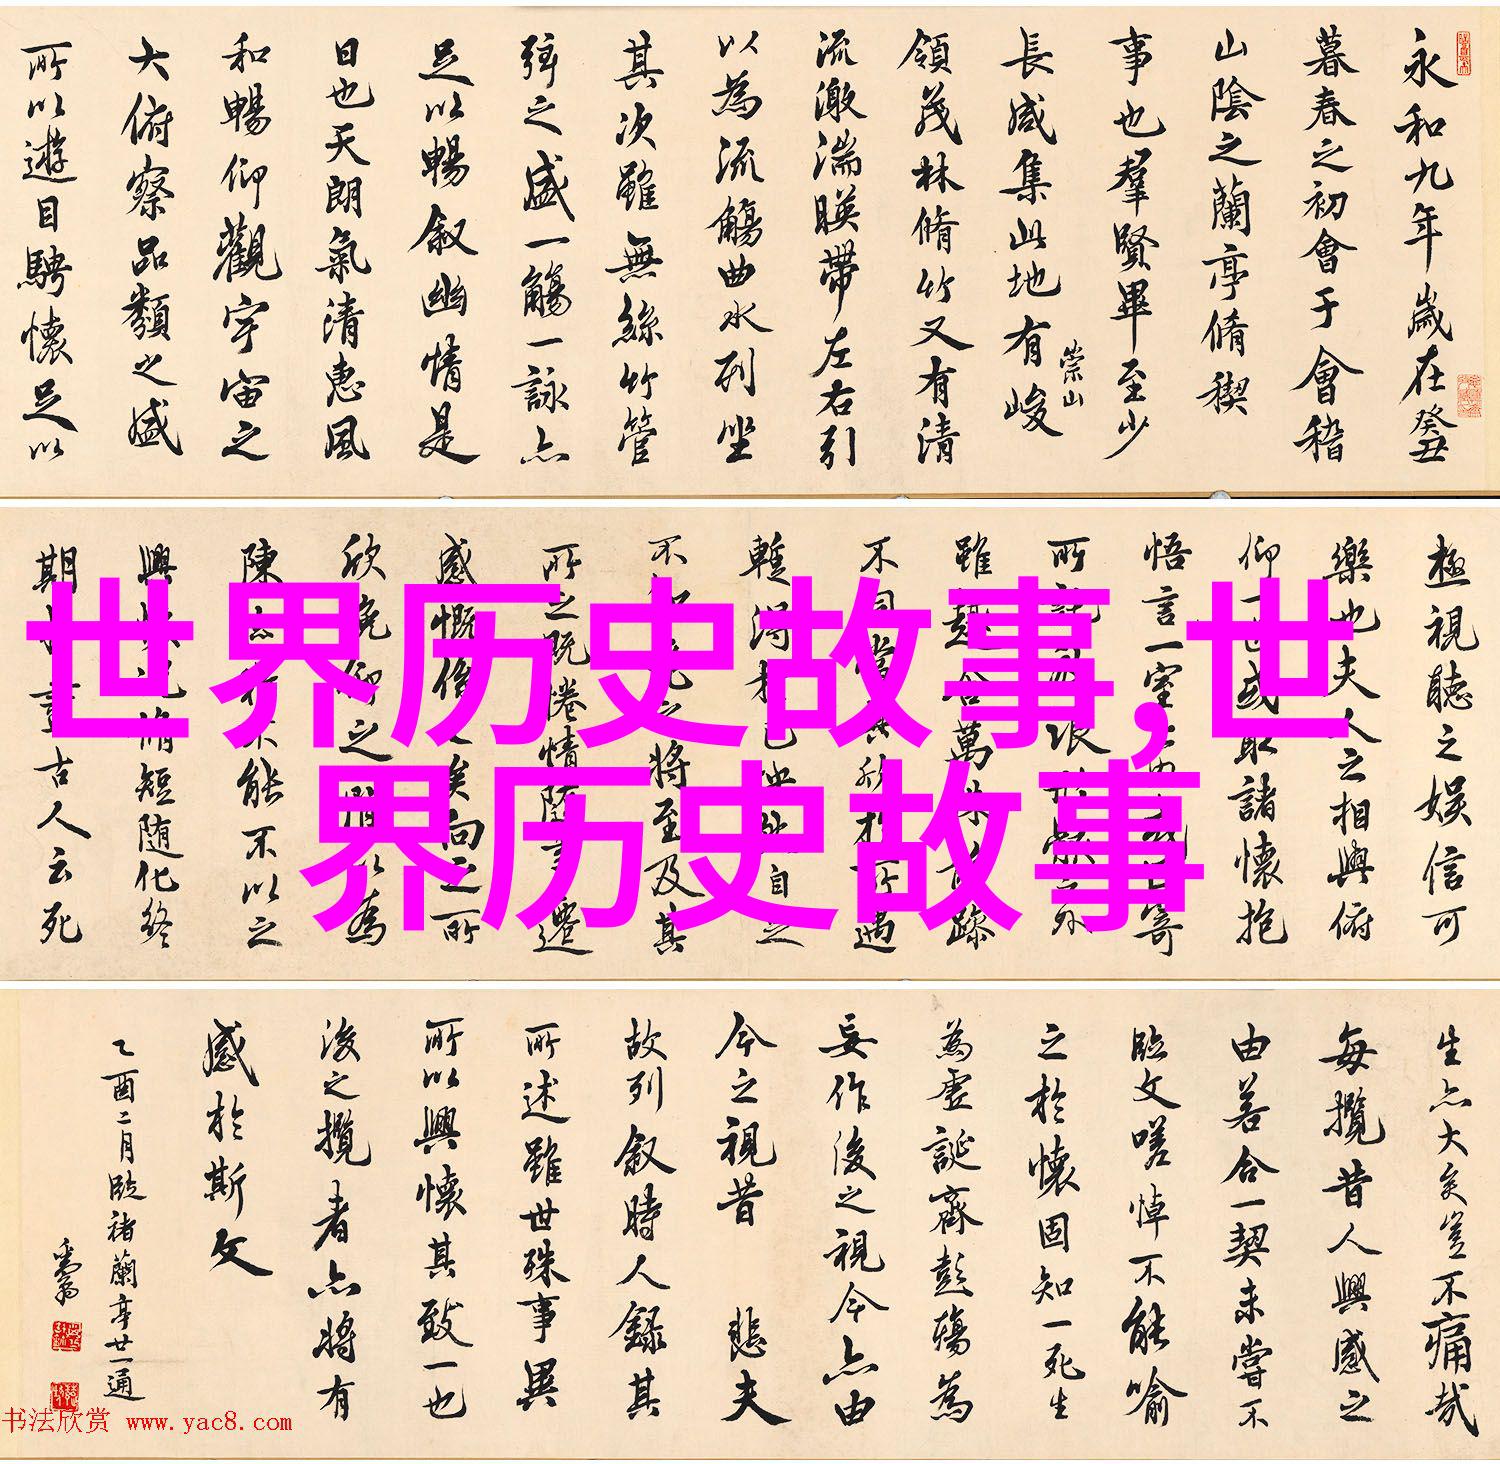 永和九年歲在癸丑
暮春之初會于會稽
山陰之蘭亭脩稧
事也羣賢畢至少
長咸集此地有峻
崇山
領茂林脩竹又有清
流激湍暎帶左右引
以為流觴曲水列坐
其次雖無絲竹管
弦之盛一觴一詠亦
足以暢叙幽情是
日也天朗氣清惠風
和暢仰觀宇宙之
大俯察品類之盛
所以遊目騁懷足以
極視聽之娛信可
樂也夫人之相與俯
仰一世或取諸懷抱
悟言一室
雖趣舍萬
不同當其欣於所遇
暫得於己
不知老之將至及其
所之既惓情隨事遷
感慨係之矣向之所
欣俛仰之間以為
陳
能不以之
興
脩短随化終
期
古人云死
生亦大矣豈不痛哉
每攬昔人興感之
由若合一契未嘗不
臨文嗟悼不能喻
之於懷固知一死生
為虛誕齊彭殤為
妄作後之視今亦由
今之視昔 悲夫
故列叙時人錄其
所述雖世殊事異
所以興懷其致一也
後之攬者亦將有
感於斯文
乙酉二月臨褚蘭亭廿一通
世界历史故事,世
界历史故事
书法欣赏 www.yac8.com